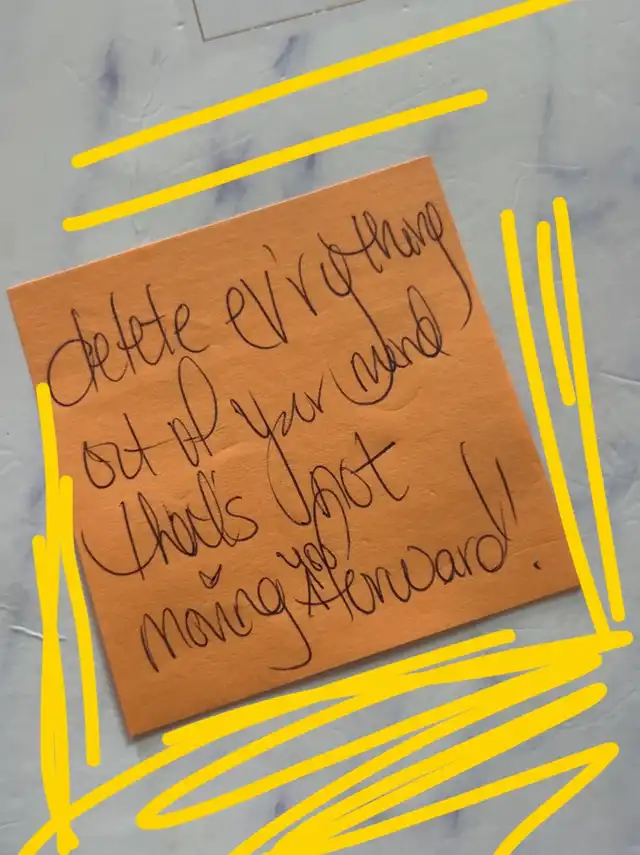 delete ev'rything
out of your mind
that's not
moving you forward!!